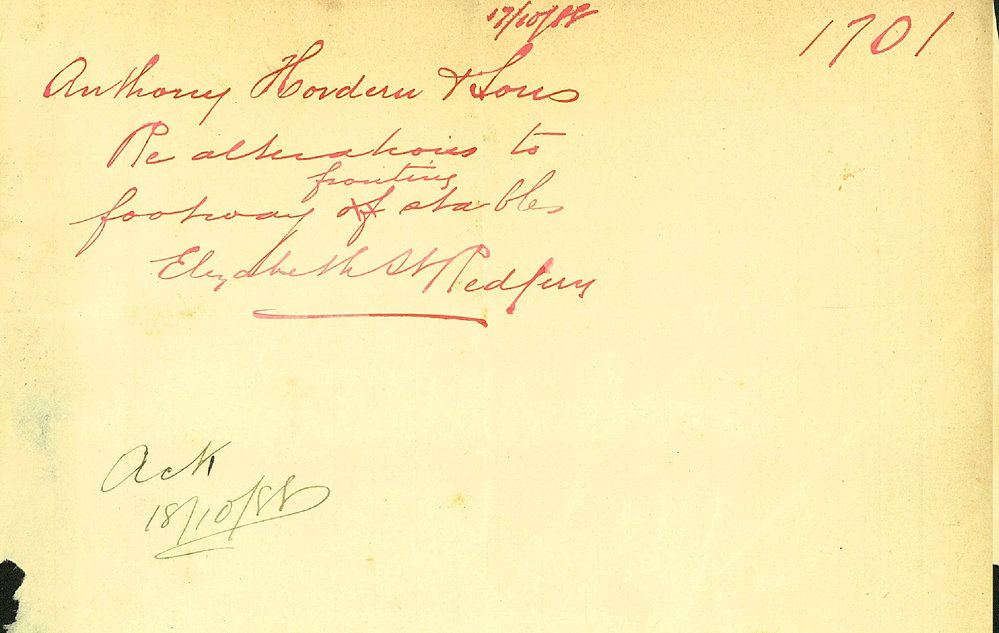 17/10/88
1701
Anthony Hordern & Sons
Re alterations to
fronting
footway of stables
Elizabeth St Redfern
Ack
18/10/88